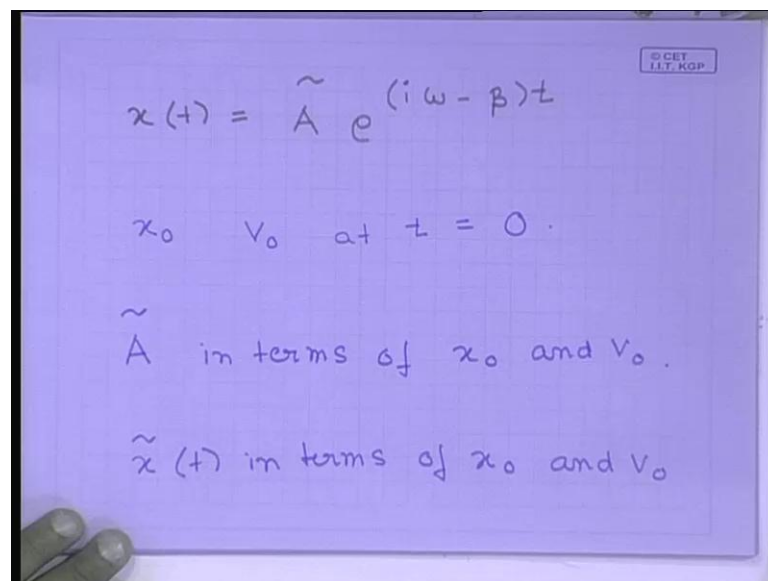 © CET
I.I.T. KGP
x(t) = Ã e^(iω - β)t
x₀ v₀ at t = 0.
Ã in terms of x₀ and v₀.
x̃(t) in terms of x₀ and v₀